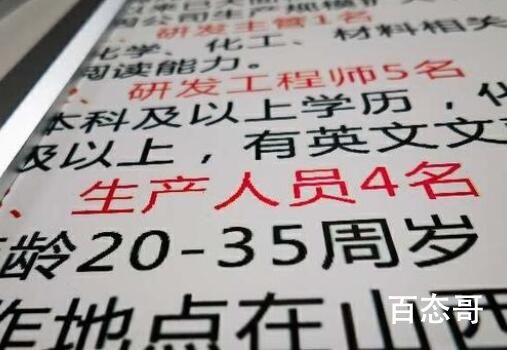 研发主管1名
化学、化工、材料相关
阅读能力。
、研发工程师5名
本科及以上学历，
及以上，有英文文
、生产人员4名
龄20-35周岁
作地点在山西
百态哥